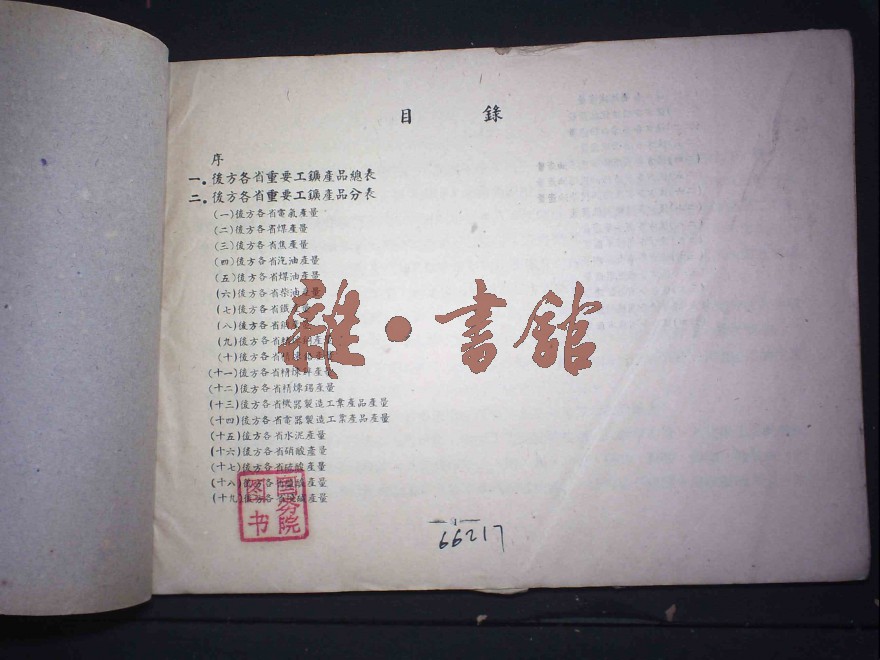 目 錄
序
一. 後方各省重要工鑛產品總表
二. 後方各省重要工鑛產品分表
(一)後方各省電氣產量
(二)後方各省煤產量
(三)後方各省焦產量
(四)後方各省汽油產量
(五)後方各省煤油產量
(六)後方各省柴油產量
(七)後方各省鐵產量
(八)後方各省產量
(九)後方各省產量
(十)後方各省精產量
(十一)後方各省精煉產量
(十二)後方各省精煉銻產量
(十三)後方各省機器製造工業產品產量
(十四)後方各省電器製造工業產品產量
(十五)後方各省水泥產量
(十六)後方各省硝酸產量
(十七)後方各省硫酸產量
(十八)後方各省產量
(十九)後方各省產量
雜·書館
图书
院
1
66217